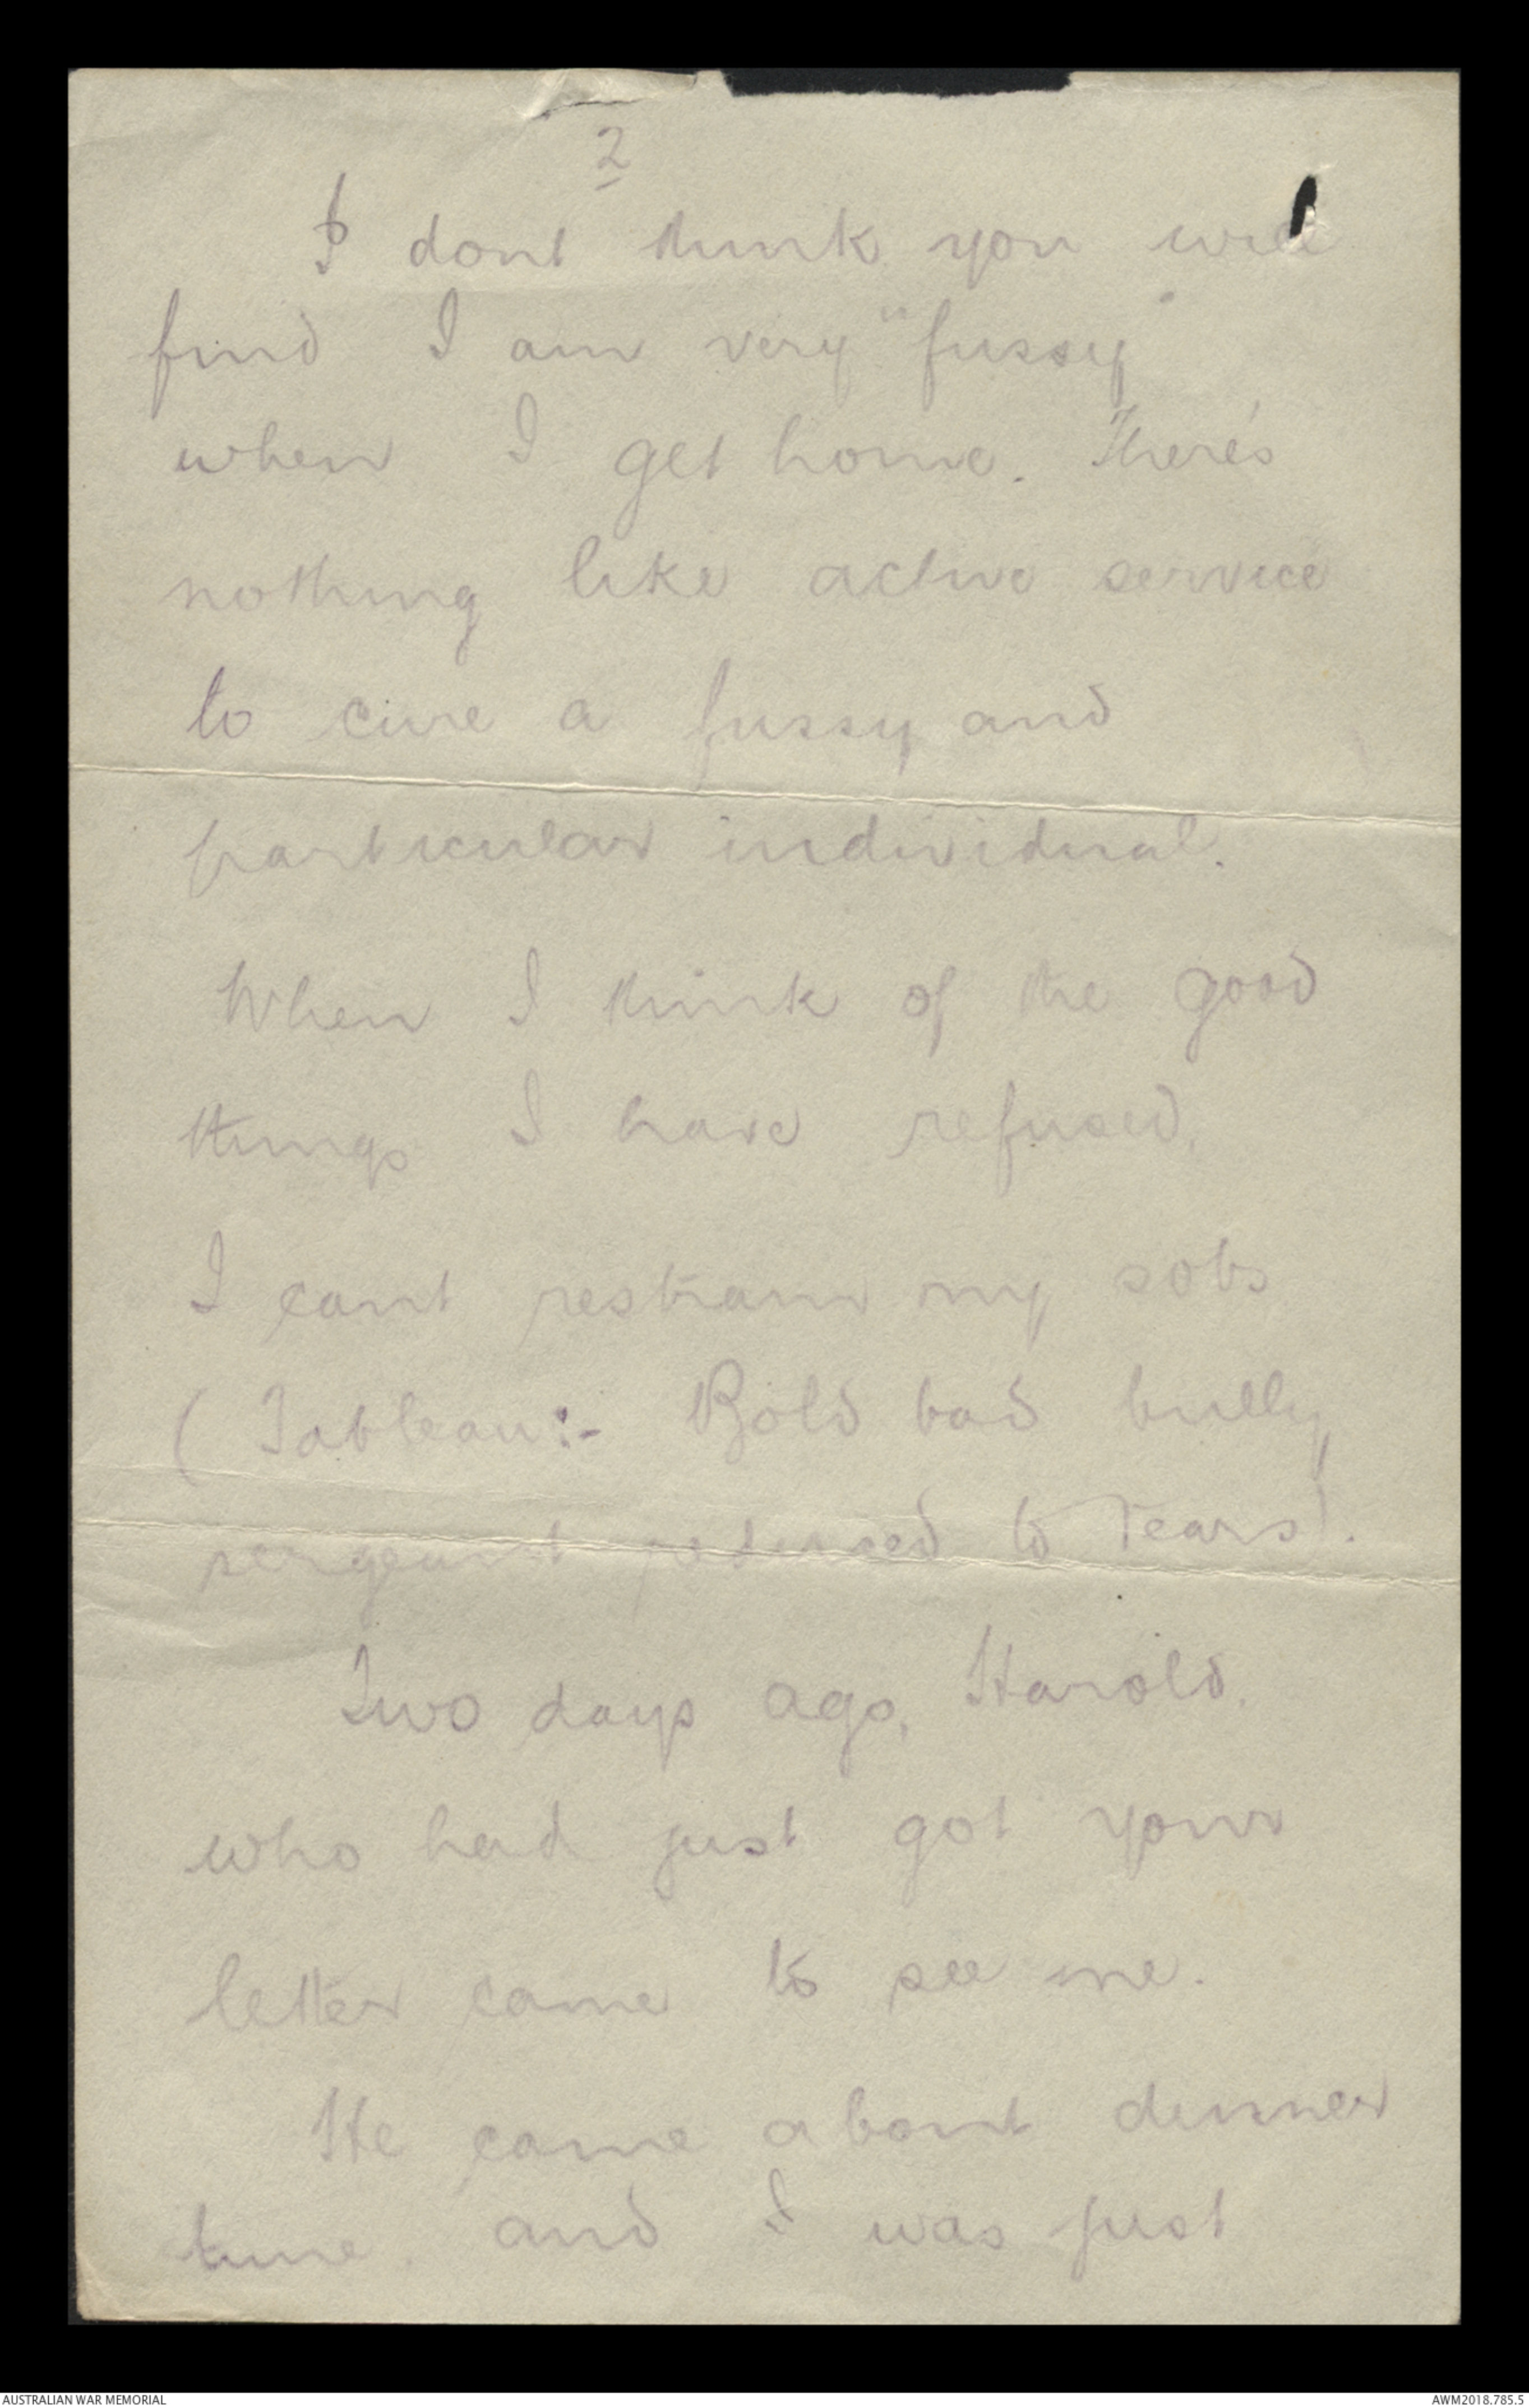 2
I dont think you will
find I am very "fussy"
when I get home. There's
nothing like active service
to cure a fussy and
particular individual.
When I think of the good
things I have refused,
I cant restrain my sobs
(Tableau:- Bold bad bully
sergeant reduced to tears).
Two days ago, Harold,
who had just got your
letter came to see me.
He came about dinner
time and I was just
AUSTRALIAN WAR MEMORIAL
AWM2018.785.5